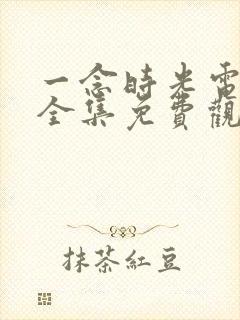 一念時光電
全集免費觀
抹茶紅豆